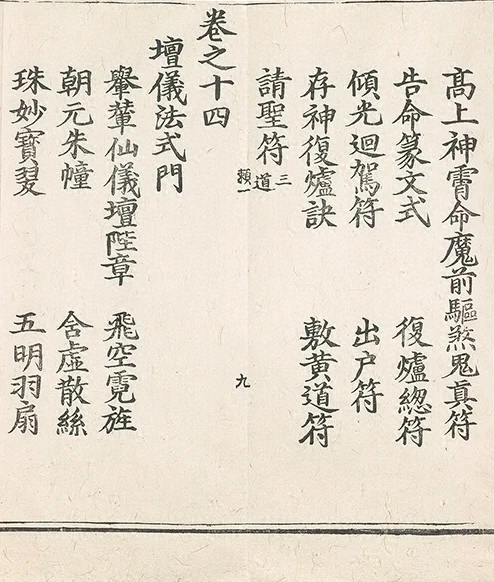 髙上神霄命魔前驅煞鬼真符
告命篆文式　復爐緫符
傾光迴駕符　出户符
存神復爐訣　敷黄道符
請聖符
三
道
類一
九
卷之十四
壇儀法式門
轝輦仙儀壇陛章　飛空霓旌
朝元朱幢　舍虛散絲
珠妙寳翣　五明羽扇